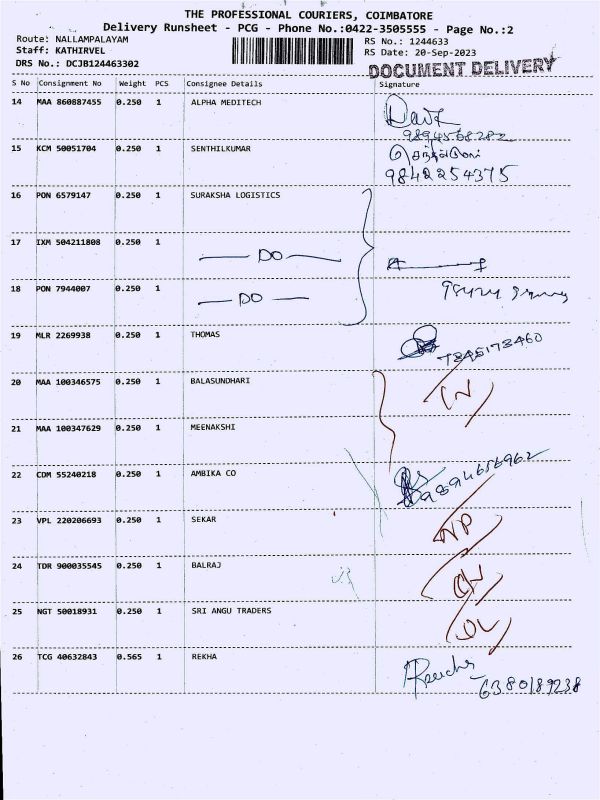 THE PROFESSIONAL COURIERS, COIMBATORE
Delivery Runsheet - PCG - Phone No.:0422-3505555 - Page No.:2
Route: NALLAMPALAYAM RS No.: 1244633
Staff: KATHIRVEL RS Date: 20-Sep-2023
DRS No.: DCJB124463302 DOCUMENT DELIVERY
S No Consignment No Weight PCS Consignee Details Signature
14 MAA 860887455 0.250 1 ALPHA MEDITECH
9894568282
15 KCM 50051704 0.250 1 SENTHILKUMAR செந்தில்குமார்
9842254375
16 PON 6579147 0.250 1 SURAKSHA LOGISTICS
17 IXM 504211808 0.250 1 DO
18 PON 7944007 0.250 1 DO
19 MLR 2269938 0.250 1 THOMAS 7845173460
20 MAA 100346575 0.250 1 BALASUNDHARI
21 MAA 100347629 0.250 1 MEENAKSHI
22 CDM 55240218 0.250 1 AMBIKA CO 9894656962
23 VPL 220206693 0.250 1 SEKAR NP
24 TDR 900035545 0.250 1 BALRAJ
25 NGT 50018931 0.250 1 SRI ANGU TRADERS OL
26 TCG 40632843 0.565 1 REKHA
6380189238